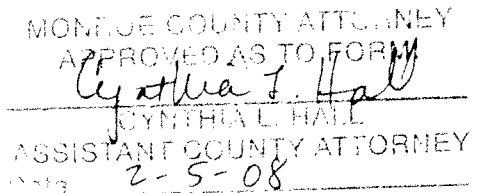 MONROE COUNTY ATTORNEY
APPROVED AS TO FORM
Cynthia L. Hall
CYNTHIA L. HALL
ASSISTANT COUNTY ATTORNEY
Date 2-5-08